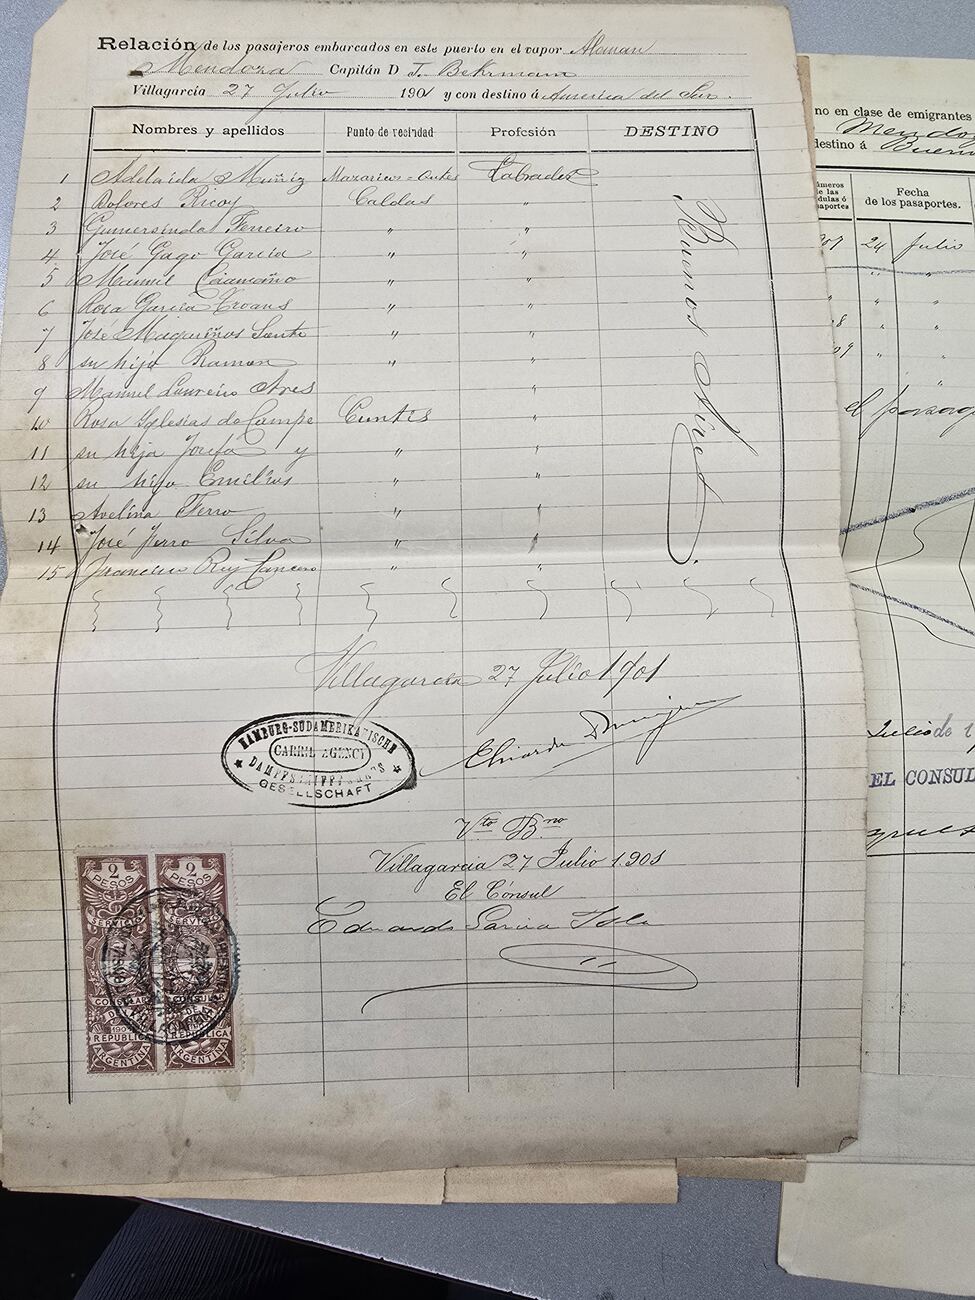 Relación de los pasajeros embarcados en este puerto en el vapor Aleman
Mendoza Capitán D J. Bekrmam
Villagarcía 27 Julio 1901 y con destino á America del Sur.
Nombres y apellidos Punto de vecindad Profesión DESTINO
1 Adelaida Muñiz Mazaricos=Outes Labrador
2 Dolores Ricoy Caldas "
3 Gumersinda Ferreiro " "
4 José Gago Garcia " "
5 Manuel Caamaño " "
6 Rosa Garcia " "
7 José Magariños " "
8 su hijo Ramon " "
9 Manuel Loureiro Ares "
10 Rosa Iglesias do Campo Cuntis "
11 su hija Josefa y " "
12 su hijo Emilios " "
13 Avelina Ferro " "
14 José Ferro Silva " "
15 Francisco Rey " "
Buenos Aires.
Villagarcia 27 Julio 1901
HAMBURG-SÜDAMERIKANISCHE
CARRIL AGENCY
DAMPFSCHIFFFAHRTS
GESELLSCHAFT
Vto Bno
Villagarcia 27 Julio 1901
El Cónsul
Eduardo Garcia
2 PESOS SERVICIO CONSULAR DE LA REPUBLICA ARGENTINA
2 PESOS SERVICIO CONSULAR DE LA REPUBLICA ARGENTINA
no en clase de emigrantes
Mendoz
destino á Buen
úmeros de las dulas ó aportes Fecha de los pasaportes.
24 Julio
" "
" "
8 " "
09 " "
"
el
Julio de 1
EL CONSUL